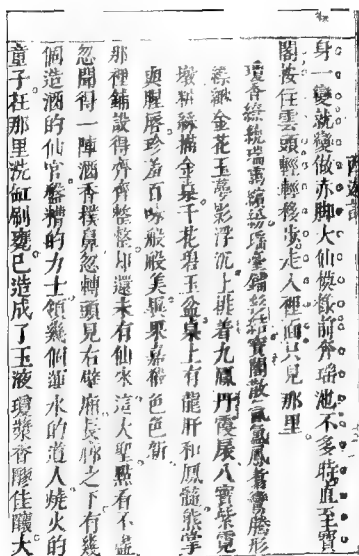 身一變就變做赤脚大仙模樣前奔瑤池不多時直至寶
閣按住雲頭輕輕移步走入裡面只見那里
瓊香繚繞瑞靄繽紛瑤臺鋪彩結寶閣散氤氳鳳翥鸞騰形
縹緲金花玉萼影浮沉上排着九鳳丹霞扆八寶紫霓
墩 金桌千花碧玉盆桌上有龍肝和鳳髓熊掌
與猩唇珍羞百味般般美異果嘉殽色色新
那裡鋪設得齊齊整整却還未有仙來這大聖點看不盡
忽聞得一陣酒香撲鼻忽轉頭見右壁廂長廊之下有幾
個造酒的仙官盤糟的力士領幾個運水的道人燒火的
童子在那里洗缸刷甕已造成了玉液瓊漿香醪佳釀大